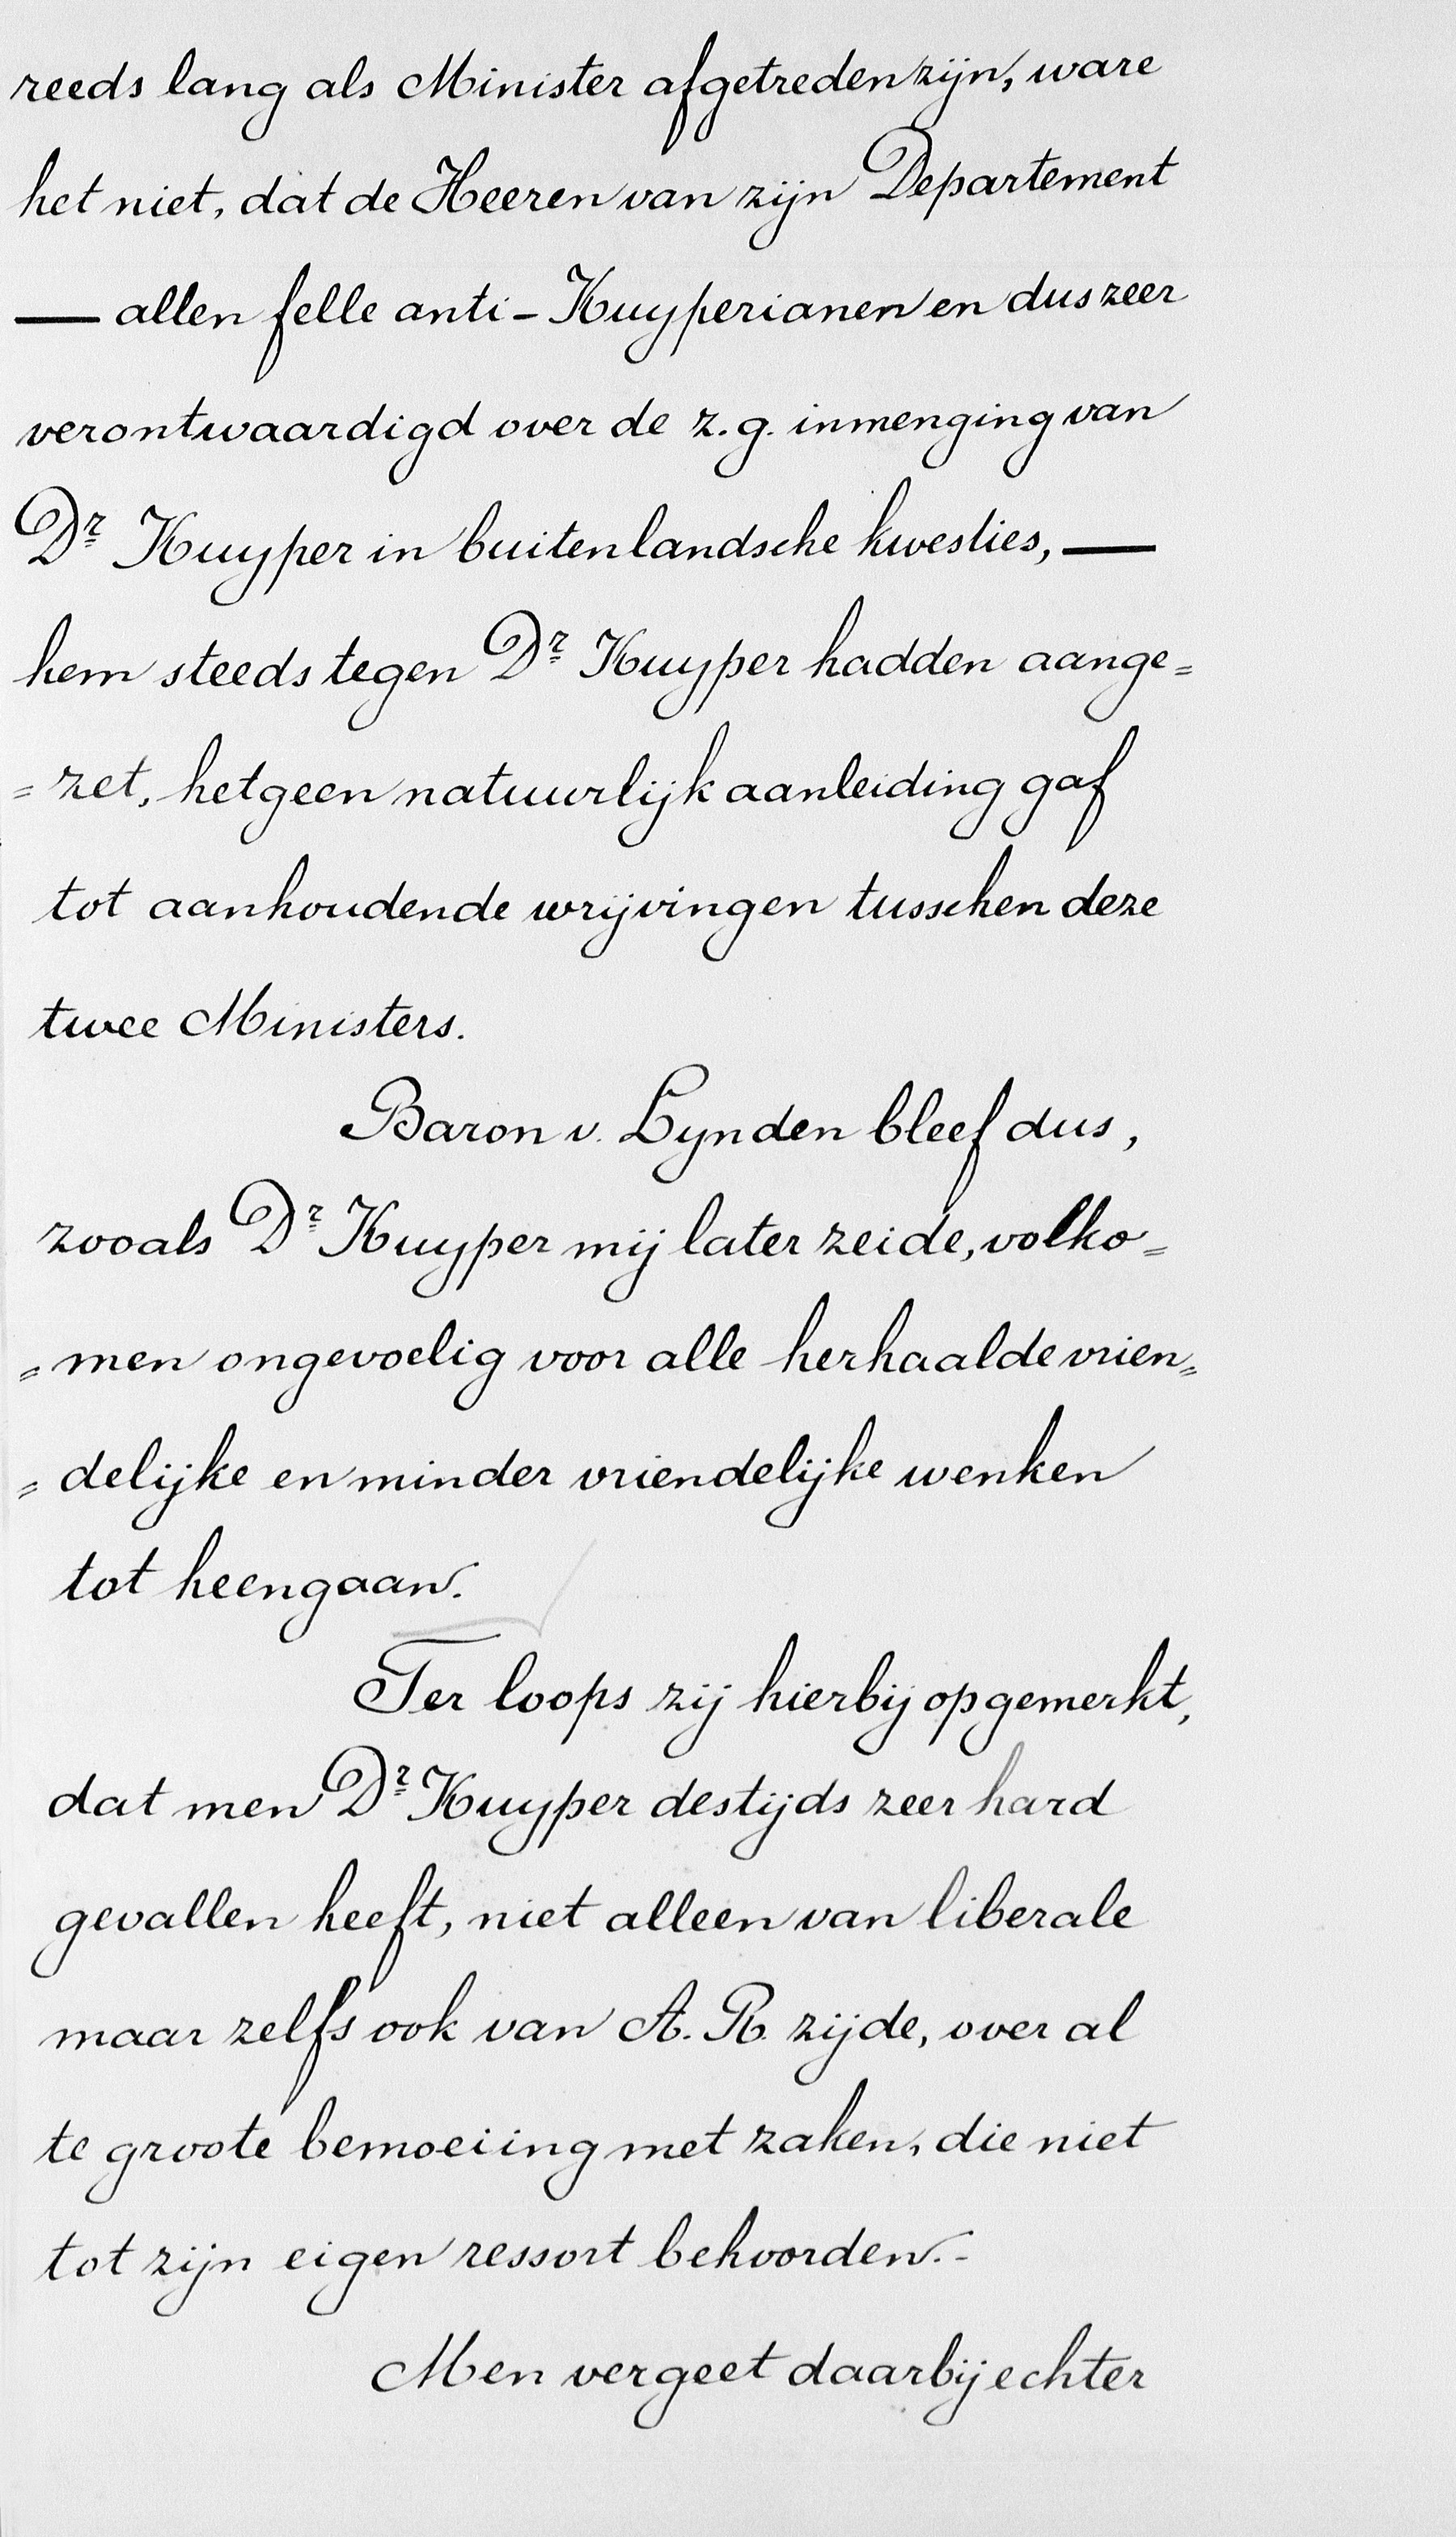 reeds lang als Minister afgetreden zijn, ware
het niet, dat de Heeren van zijn Departement
— allen felle anti-Kuyperianen en dus zeer
verontwaardigd over de z.g. inmenging van
Dr Kuyper in buitenlandsche kwesties, —
hem steeds tegen Dr Kuyper hadden aange=
=zet, hetgeen natuurlijk aanleiding gaf
tot aanhoudende wrijvingen tusschen deze
twee Ministers.
Baron v. Lynden bleef dus,
zooals Dr Kuyper mij later zeide, volko=
=men ongevoelig voor alle herhaalde vrien=
=delijke en minder vriendelijke wenken
tot heengaan.
Ter loops zij hierbij opgemerkt,
dat men Dr Kuyper destijds zeer hard
gevallen heeft, niet alleen van liberale
maar zelfs ook van A. R. zijde, over al
te groote bemoeiing met zaken, die niet
tot zijn eigen ressort behoorden.-
Men vergeet daarbij echter